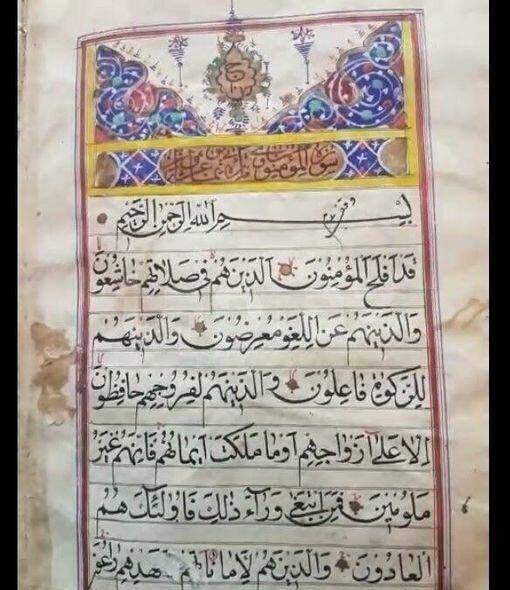 سورة المؤمنون
بسم الله الرحمن الرحيم
قد افلح المؤمنون الذين هم في صلاتهم خاشعون
والذين هم عن اللغو معرضون والذين هم
للزكوة فاعلون والذين هم لفروجهم حافظون
الا على ازواجهم او ما ملكت ايمانهم فانهم غير
ملومين فمن ابتغى ورآء ذلك فاولئك هم
العادون والذين هم لاماناتهم وعهدهم راعو